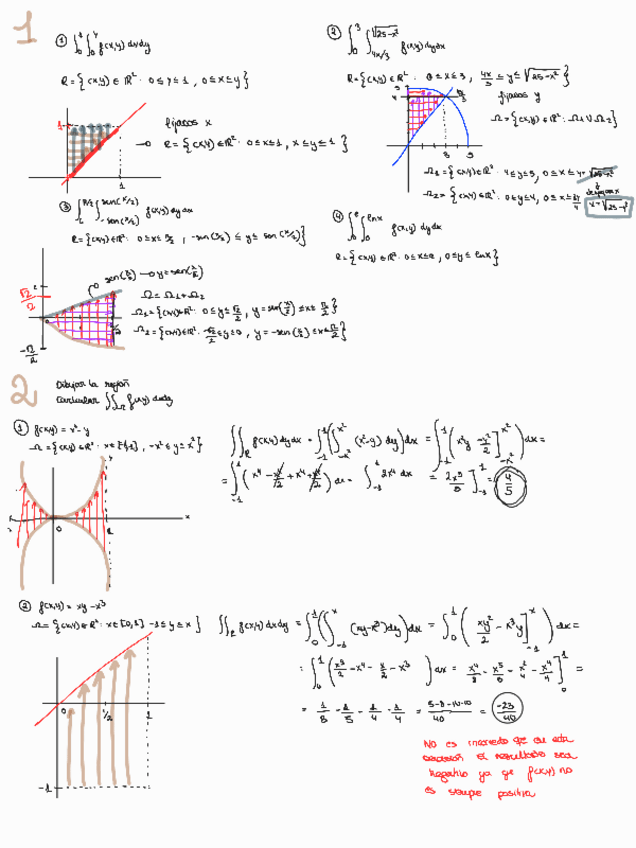 1
① ∫₀¹ ∫₀^y f(x,y) dxdy
R = { (x,y) ∈ ℝ² : 0 ≤ y ≤ 1 , 0 ≤ x ≤ y }
1
fijamos x
→ R = { (x,y) ∈ ℝ² : 0 ≤ x ≤ 1 , x ≤ y ≤ 1 }
1
② ∫₀³ ∫_{4x/3}^{√25-x²} f(x,y) dydx
R = { (x,y) ∈ ℝ² : 0 ≤ x ≤ 3 , 4x/3 ≤ y ≤ √25-x² }
fijamos y
Ω = { (x,y) ∈ ℝ² : Ω1 ∪ Ω2 }
5
4
3
5
Ω1 = { (x,y) ∈ ℝ² : 4 ≤ y ≤ 5, 0 ≤ x ≤
despejar x
x = √25-y²
Ω2 = { (x,y) ∈ ℝ² : 0 ≤ y ≤ 4, 0 ≤ x ≤
③ sen(x/2)
-sen(x/2) f(x,y) dydx
R = { (x,y) ∈ ℝ² : 0 ≤ x ≤ π/2 , -sen(x/2) ≤ y ≤ sen(x/2) }
sen(x/2) → y = sen(x/2)
√2/2
-√2/2
Ω = Ω1 + Ω2
Ω1 = { (x,y) ∈ ℝ² : 0 ≤ y ≤ √2/2 , y = sen(x/2) ≤ x ≤ π/2 }
Ω2 = { (x,y) ∈ ℝ² : -√2/2 ≤ y ≤ 0 , y = -sen(x/2) ≤ x ≤ π/2 }
④ ∫ ∫₀^{lnx} f(x,y) dydx
R = { (x,y) ∈ ℝ² : 0 ≤ x ≤ e , 0 ≤ y ≤ lnx }
2
Dibujar la región
Calcular ∫∫_Ω f(x,y) dxdy
① f(x,y) = x² - y
Ω = { (x,y) ∈ ℝ² : x ∈ [-1,1] , -x² ≤ y ≤ x² }
∫∫_R f(x,y) dydx = ∫₋₁¹ ( ∫_{-x²}^{x²} (x²-y) dy ) dx = ∫₋₁¹ ( x²y - y²/2 ]_{-x²}^{x²} dx =
= ∫₋₁¹ ( x⁴ - x⁴/2 + x⁴ + x⁴/2 ) dx = ∫₋₁¹ 2x⁴ dx = 2x⁵/5 ]₋₁¹ = 4/5
y
0
1
x
② f(x,y) = xy - x³
Ω = { (x,y) ∈ ℝ² : x ∈ [0,1] -1 ≤ y ≤ x }
∫∫_R f(x,y) dxdy = ∫₀¹ ( ∫₋₁^x (xy-x³) dy ) dx = ∫₀¹ ( xy²/2 - x³y ]₋₁^x ) dx =
= ∫₀¹ ( x³/2 - x⁴ - x/2 - x³ ) dx = x⁴/8 - x⁵/5 - x²/4 - x⁴/4 ]₀¹ =
= 1/8 - 1/5 - 1/4 - 1/4 = 5-8-10-10/40 = -23/40
0
1/2
1
-1
No es
el resultado sea
negativo ya qe f(x,y) no
es siempre positiva